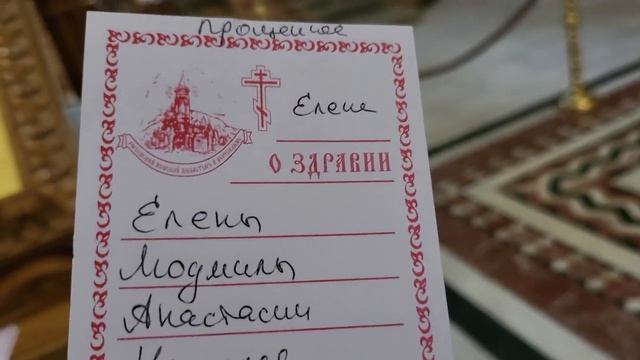 прощенное
Елене
О ЗДРАВИИ
Елены
Людмилы
Анастасии